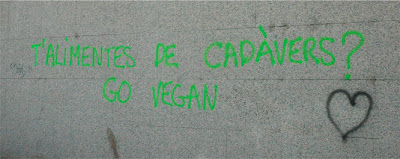 T'ALIMENTES DE CADÀVERS?
GO VEGAN